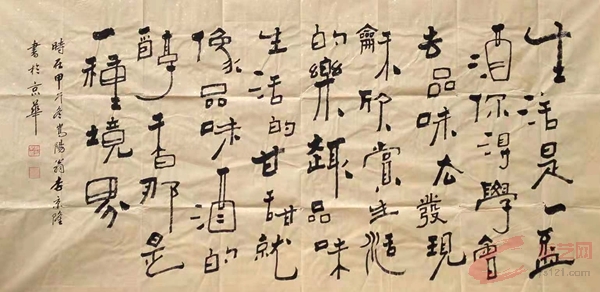 生活是一盃
酒你得學會
去品味去發現
龢欣賞生活
的樂趣品味
生活的甘甜就
像品味酒的
醇香那是
一種境界
時在甲午冬嵩陽翁書京隆
書於京華